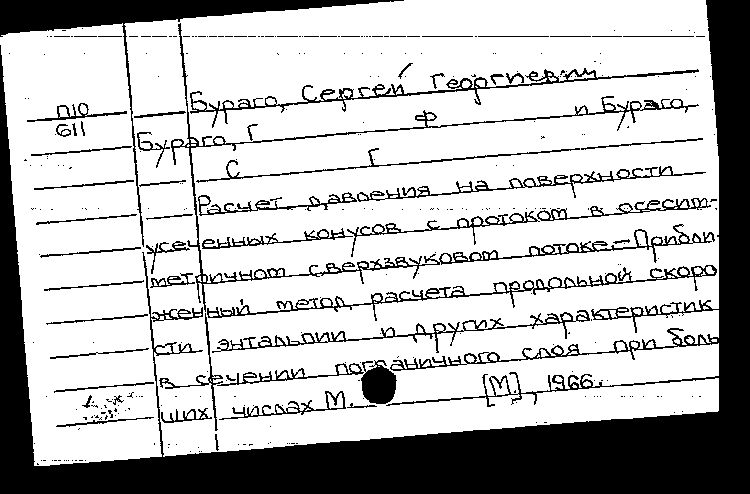 Бураго, Сергей Георгиевич
П10
611
Бураго, Г Ф и Бураго,
С Г
Расчет давления на поверхности
усеченных конусов с протоком в осесим-
метричном сверхзвуковом потоке.- Прибли-
женный метод расчета продольной скоро
сти энтальпии и других характеристик
в сечении пограничного слоя при боль
ших числах М. [М], 1966.